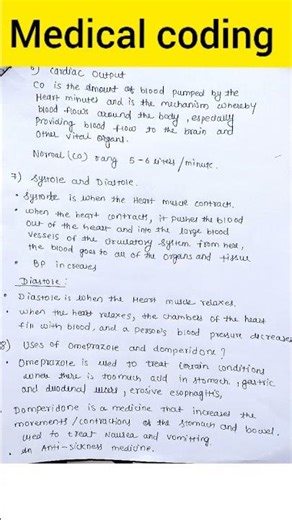 Medical coding
6) Cardiac Output
CO is the amount of blood pumped by the
Heart minutes and is the mechanism whereby
blood flows around the body, especially
Providing blood flow to the brain and
Other vital organs.
Normal (CO) rang 5-6 liters/minute.
7) Systole and Diastole.
• Systole is when the Heart muscle contract.
• when the heart contracts, it pushes the blood
out of the heart and into the large blood
vessels of the circulatory System from here,
the blood goes to all of the organs and tissue
• BP increases
Diastole :
• Diastole is when the Heart muscle relaxes.
• when the heart relaxes, the chambers of the heart
fill with blood, and a person's blood pressure decreases
8) Uses of Omeprazole and domperidone ?
• Omeprazole is used to treat certain conditions
where there is too much acid in stomach, gastric
and duodenal ulcers, erosive esophagitis,
Domperidone is a medicine that increases the
movements / contractions of the stomach and bowel.
used to treat Nausea and vomitting.
• an Anti-sickness medicine.